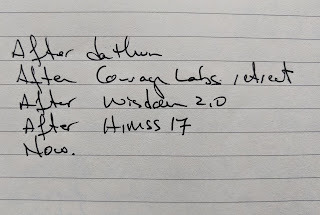 After dathun
After Courage Labs retreat
After Wisdom 2.0
After HIMSS 17
Now.